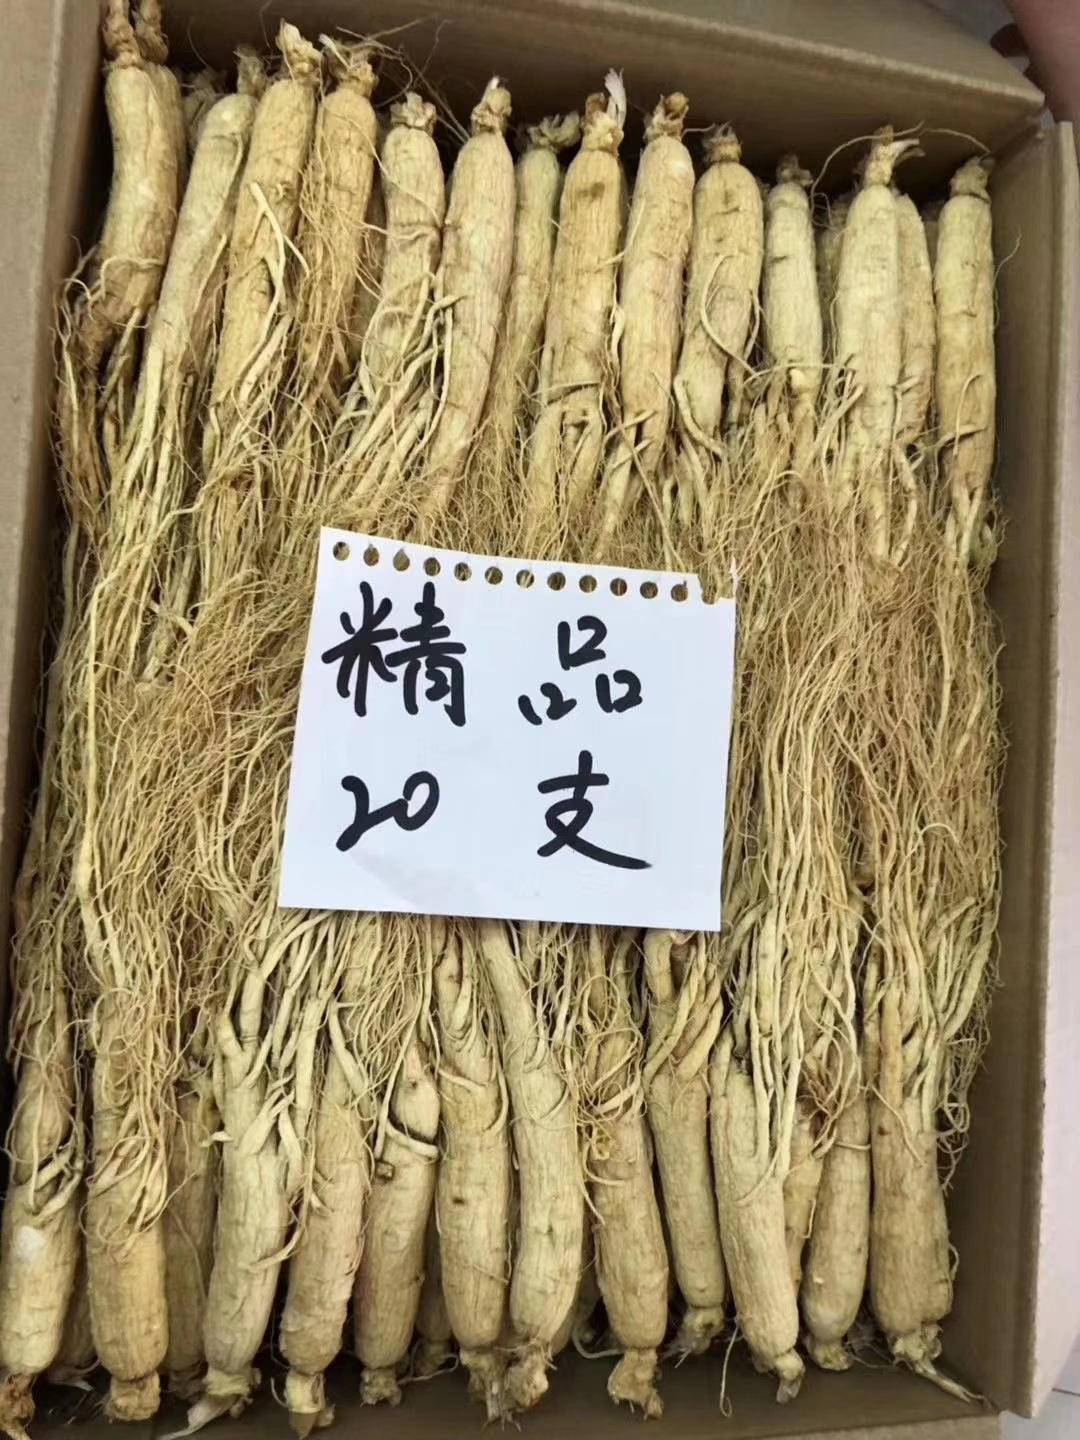 精品
20支